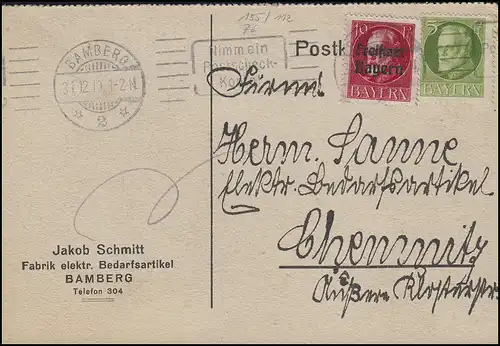 155/112
76
BAMBERG
31 12 1-2 N
2
Nimm ein
Postscheck-
Konto
Postk
10
Freistaat
Bayern
BAYERN
5
BAYERN
Firma
Herm. Sanne
Elektr. Bedarfsartikel
Chemnitz
Äußere Klosterstr
Jakob Schmitt
Fabrik elektr. Bedarfsartikel
BAMBERG
Telefon 304